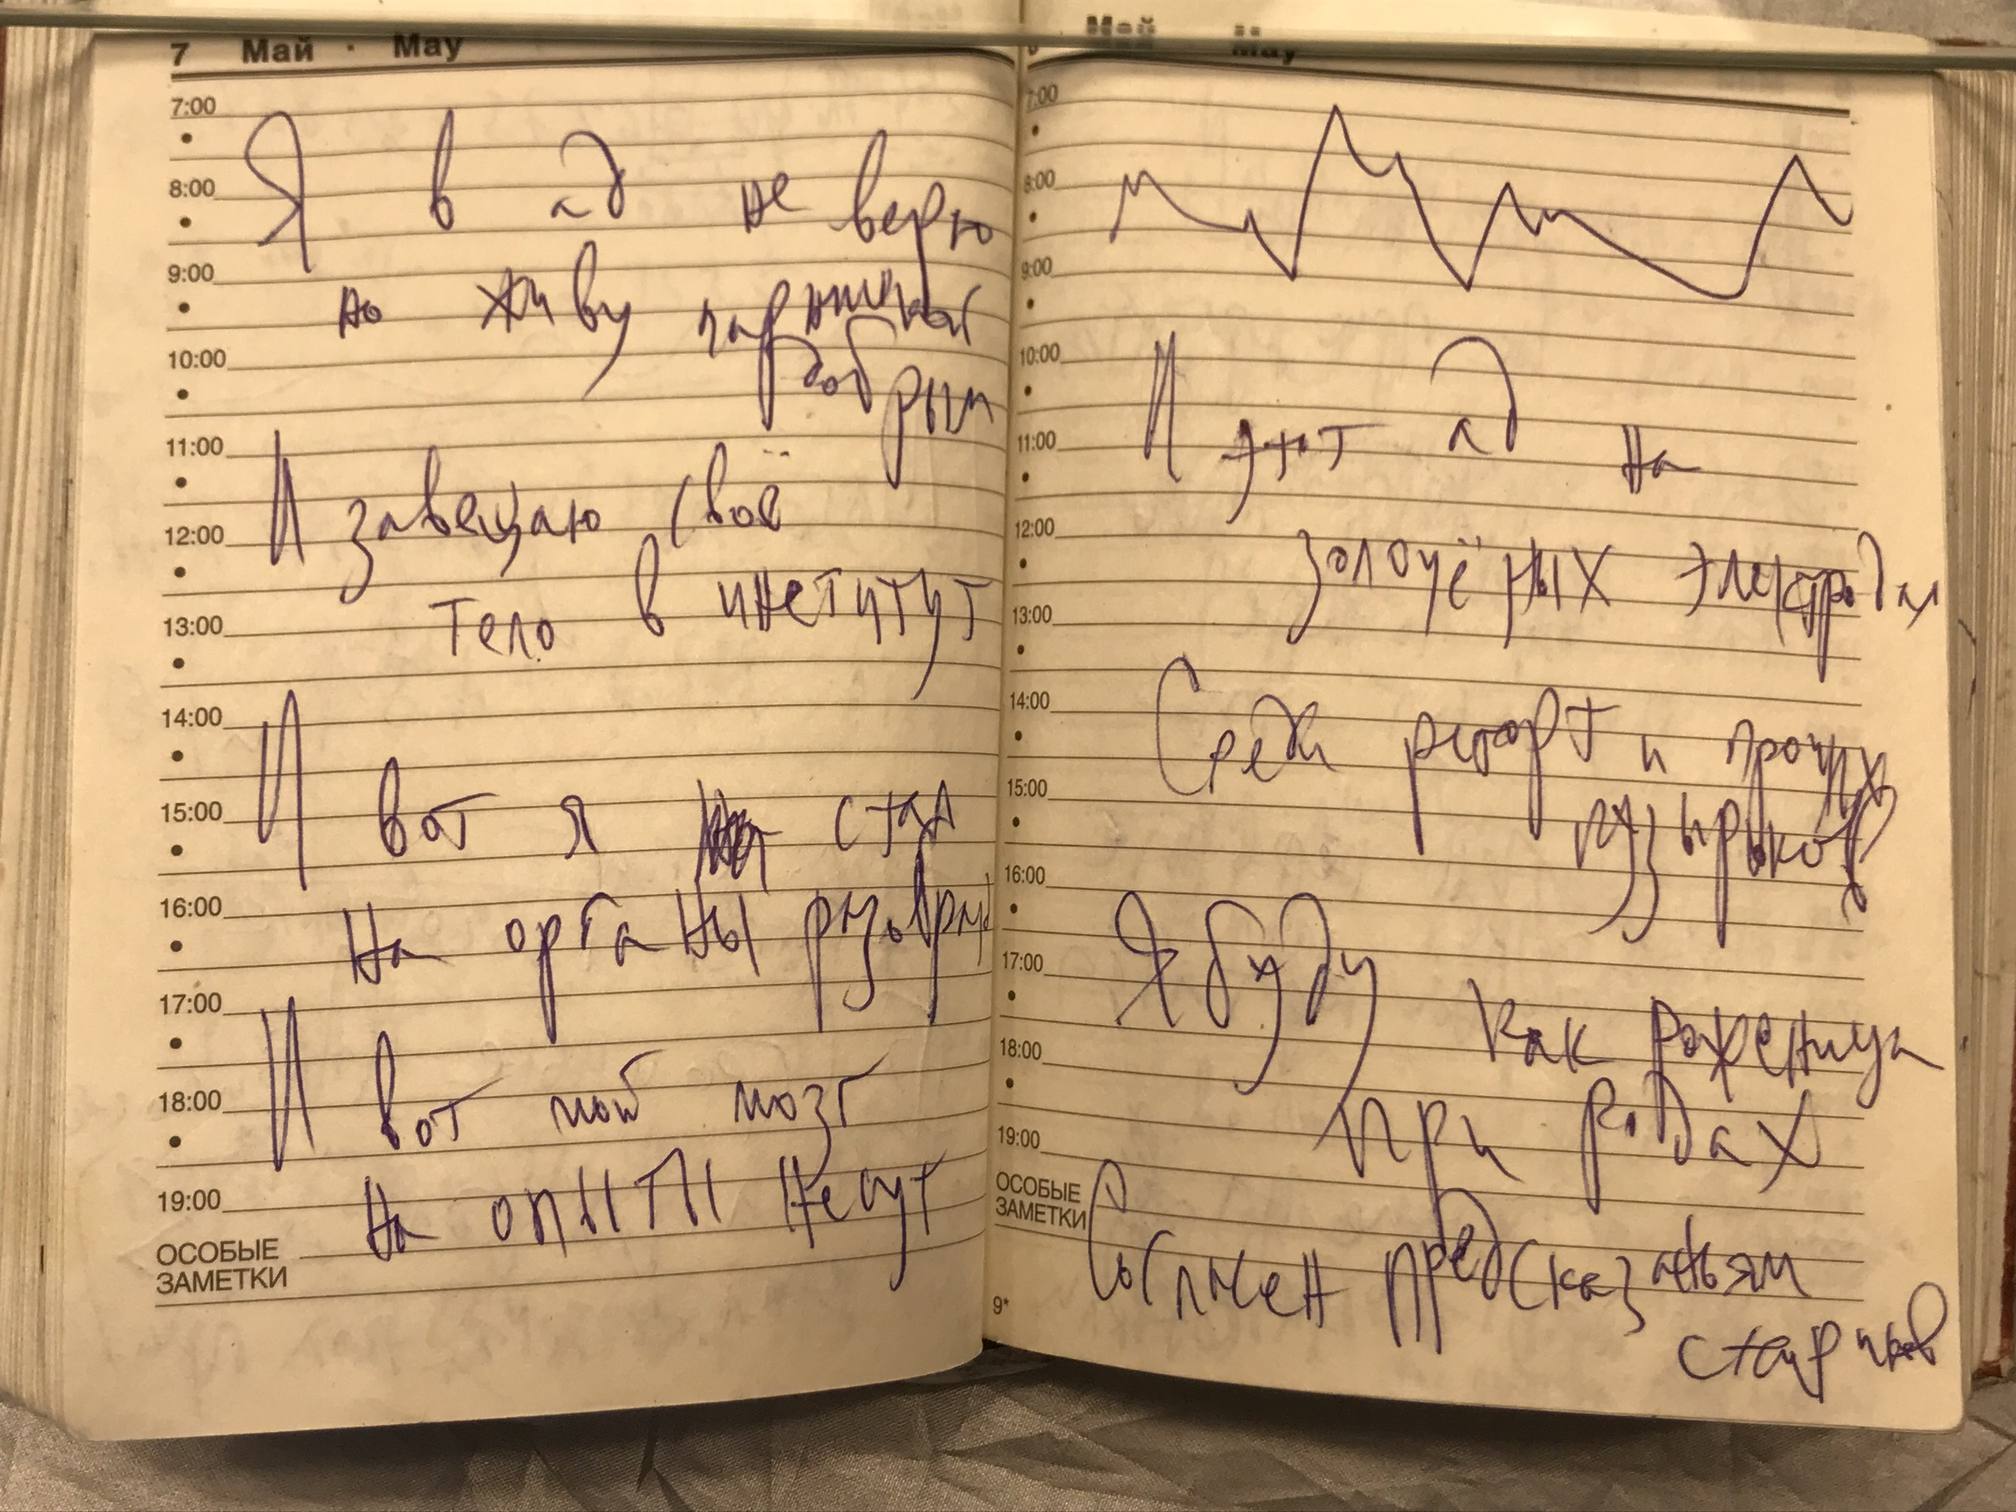 7 Май · May
7:00
8:00
9:00
10:00
11:00
12:00
13:00
14:00
15:00
16:00
17:00
18:00
19:00
ОСОБЫЕ
ЗАМЕТКИ
Я в ад не верю
но живу
добрым
И завещаю своё
тело в институт
И вот я стал
на органы разобран
И вот мой мозг
на опыты несут
Май May
7:00
8:00
9:00
10:00
11:00
12:00
13:00
14:00
15:00
16:00
17:00
18:00
19:00
ОСОБЫЕ
ЗАМЕТКИ
9*
И этот ад на
золочёных электродах
Среди реторт и прочих
пузырьков
Я буду как роженица
при родах
предсказаньям
стариков